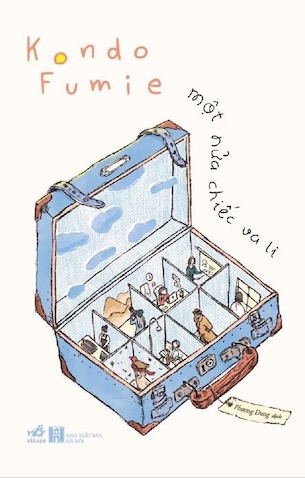 Kondo
Fumie
một nửa chiếc va li
Phương Dung dịch
NHÃ NAM
NHÀ XUẤT BẢN
HÀ NỘI